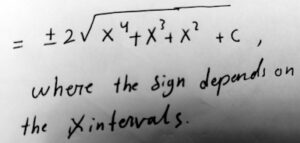 = ± 2√(x⁴+x³+x²) + C ,
where the sign depends on
the X intervals.